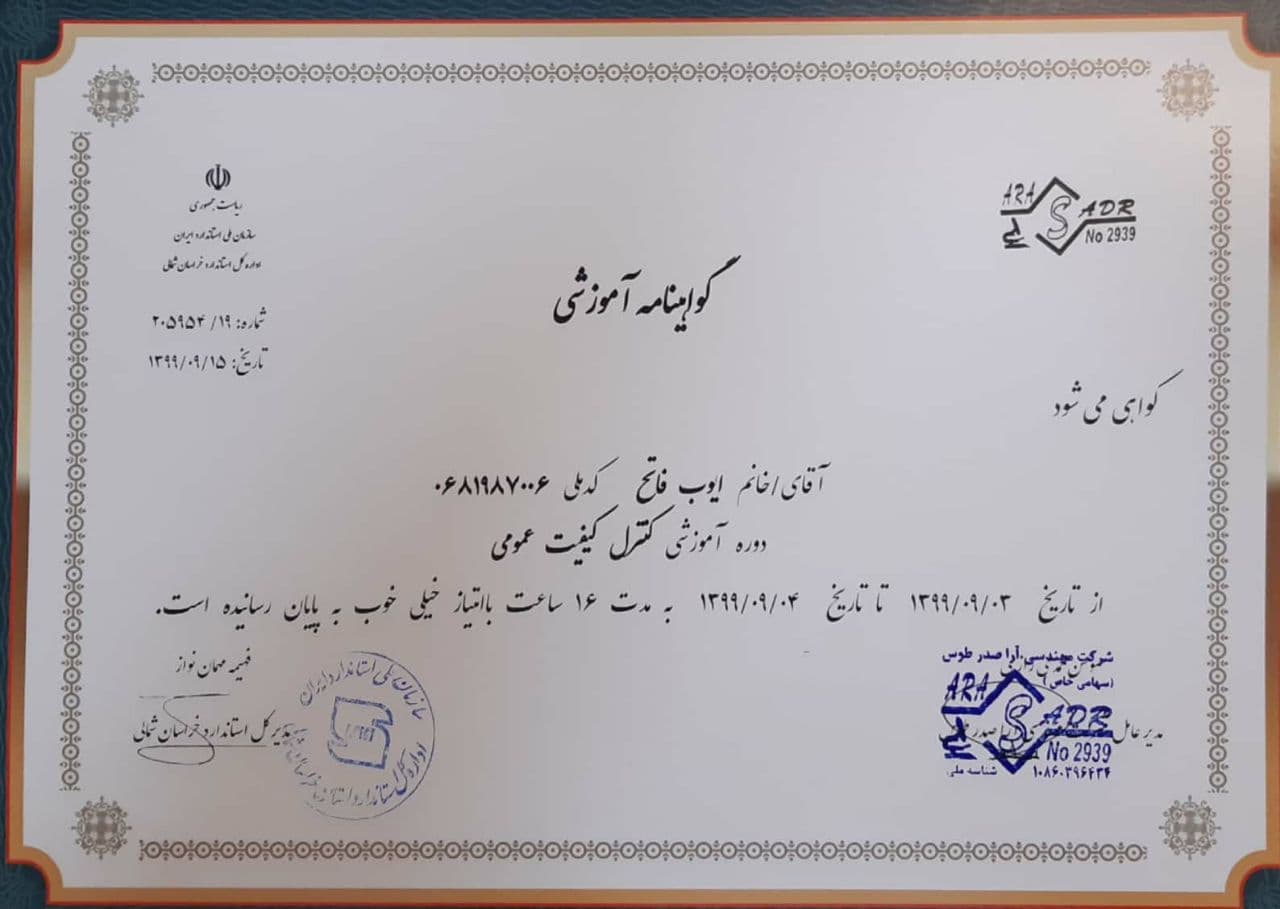 ریاست جمهوری
سازمان ملی استاندارد ایران
اداره کل استاندارد خراسان شمالی
شماره: ۱۹/ ۲۰۵۹۵۴
تاریخ: ۱۳۹۹/۰۹/۱۵
ARA S ADR
No 2939
گواهینامه آموزشی
گواهی می شود
آقای/خانم ایوب فاتح کدملی ۰۶۸۱۹۸۷۰۰۶
دوره آموزشی کنترل کیفیت عمومی
از تاریخ ۱۳۹۹/۰۹/۰۳ تا تاریخ ۱۳۹۹/۰۹/۰۴ به مدت ۱۶ ساعت باامتیاز خیلی خوب به پایان رسانیده است.
فهیمه مهمان نواز
مدیرکل استاندارد خراسان شمالی
سازمان ملی استاندارد ایران
اداره کل استاندارد خراسان شمالی
شرکت مهندسی آرا صدر طوس
(سهامی خاص)
ARA S ADR
No 2939
شناسه ملی ۱۰۸۶۰۳۹۶۴۳۴
مدیرعامل